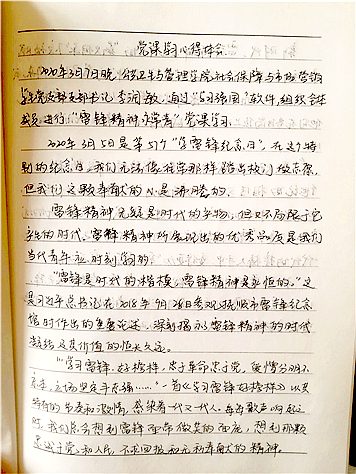 党课学习心得体会
2020年3月7日晚，公卫与管理学院社会保障与市场营销
学生党支部支部书记李润敏，通过“学习强国”软件，组织全体
成员进行“雷锋精神 党课学习。
2020年3月5日是第57个“学雷锋纪念日”，在这个特
别的纪念日，我们无法像往常那样踏出校门做志愿，
但我们这颗奉献的心是沸腾的。
雷锋精神无疑是时代的产物，但又不局限于它
产生的时代。雷锋精神所展现出的优秀品质是我们
当代青年应时刻学习的。
“雷锋是时代的楷模，雷锋精神是永恒的。”这
是习近平总书记在2018年9月28日参观抚顺市雷锋纪念
馆时作出的重要论述，深刻揭示雷锋精神的时代
特征及其价值的恒久久远。
“学习雷锋，好榜样，忠于革命忠于党，爱憎分明不
忘本，立场坚定斗志强……”一首《学习雷锋好榜样》以其
特有的节奏和激情，感染着一代又一代人。每每歌声响起之
时，我们总会想到雷锋同志做过的而感，想到那颗
忠诚于党和人民，不求回报和无私奉献的精神。